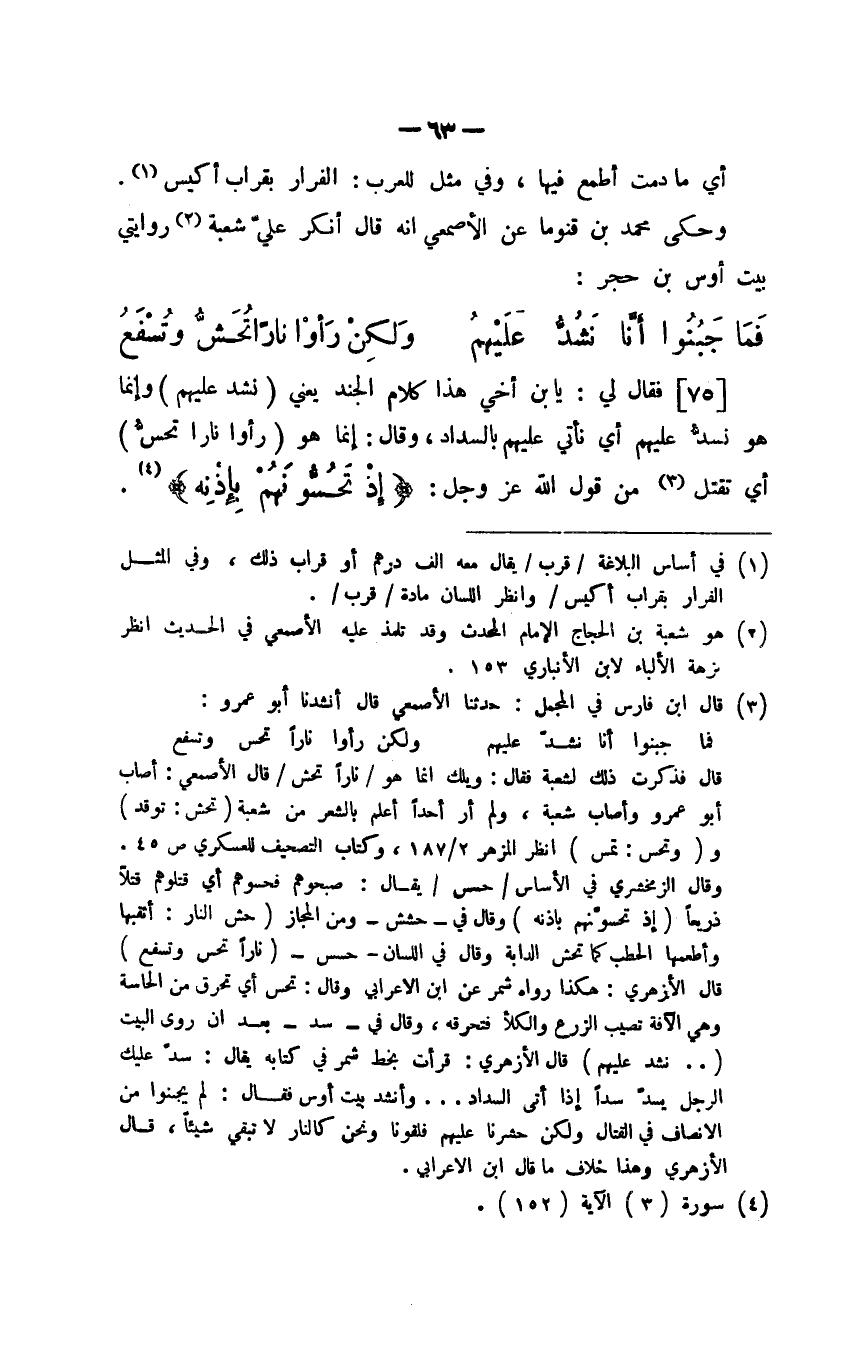 — ٦٣ —
أي ما دمت أطمع فيها ، وفي مثل للعرب : الفرار بقراب أكيس (١) .
وحكى محمد بن قنوما عن الأصمعي انه قال أنكر عليّ شعبة (٢) روايتي
بيت أوس بن حجر :
فَمَا جَبُنُوا أَنَّا نَشُدُّ عَلَيْهِمُ ولَكِنْ رَأَوْا نارًا تُحَشُّ وتُسْفَعُ
[٧٥] فقال لي : يا بن أخي هذا كلام الجند يعني ( نشد عليهم ) وإنما
هو نسدّ عليهم أي نأتي عليهم بالسداد ، وقال : إنما هو ( رأوا نارا تحسّ )
أي تقتل (٣) من قول الله عز وجل : ﴿ إِذْ تَحُسُّونَهُمْ بِإِذْنِه ﴾ (٤) .
(١) في أساس البلاغة / قرب / يقال معه الف درهم أو قراب ذلك ، وفي المثل
الفرار بقراب أكيس / وانظر اللسان مادة / قرب / .
(٢) هو شعبة بن الحجاج الإمام المحدث وقد تلمذ عليه الأصمعي في الحديث انظر
نزهة الألباء لابن الأنباري ١٥٣ .
(٣) قال ابن فارس في المجمل : حدثنا الأصمعي قال أنشدنا أبو عمرو :
فما جبنوا أنا نشدّ عليهم ولكن رأوا ناراً تحس وتسفع
قال فذكرت ذلك لشعبة فقال : ويلك انما هو / ناراً تحش / قال الأصمعي : أصاب
أبو عمرو وأصاب شعبة ، ولم أر أحداً أعلم بالشعر من شعبة ( تحش : توقد )
و ( وتحس : تمس ) انظر المزهر ١٨٧/٢ ، وكتاب التصحيف للعسكري ص ٤٥ .
وقال الزمخشري في الأساس / حسس / يقال : صبحوهم فحسوهم أي قتلوهم قتلاً
ذريعاً ( إذ تحسوّنهم باذنه ) وقال في – حشش – ومن المجاز ( حش النار : أثقبها
وأطعمها الحطب كما تحش الدابة وقال في اللسان – حسس – ( ناراً تحس وتسفع )
قال الأزهري : هكذا رواه شمر عن ابن الاعرابي وقال : تحس أي تحرق من الحاسة
وهي الآفة تصيب الزرع والكلأ فتحرقه ، وقال في – سد – بعد ان روى البيت
( . . نشد عليهم ) قال الأزهري : قرأت بخط شمر في كتابه يقال : سدّ عليك
الرجل يسدّ سداً إذا أتى السداد . . . وأنشد بيت أوس فقال : لم يجبنوا من
الانصاف في القتال ولكن حشرنا عليهم فلقونا ونحن كالنار لا تبقي شيئاً ، قال
الأزهري وهذا خلاف ما قال ابن الاعرابي .
(٤) سورة ( ٣ ) الآية ( ١٥٢ ) .